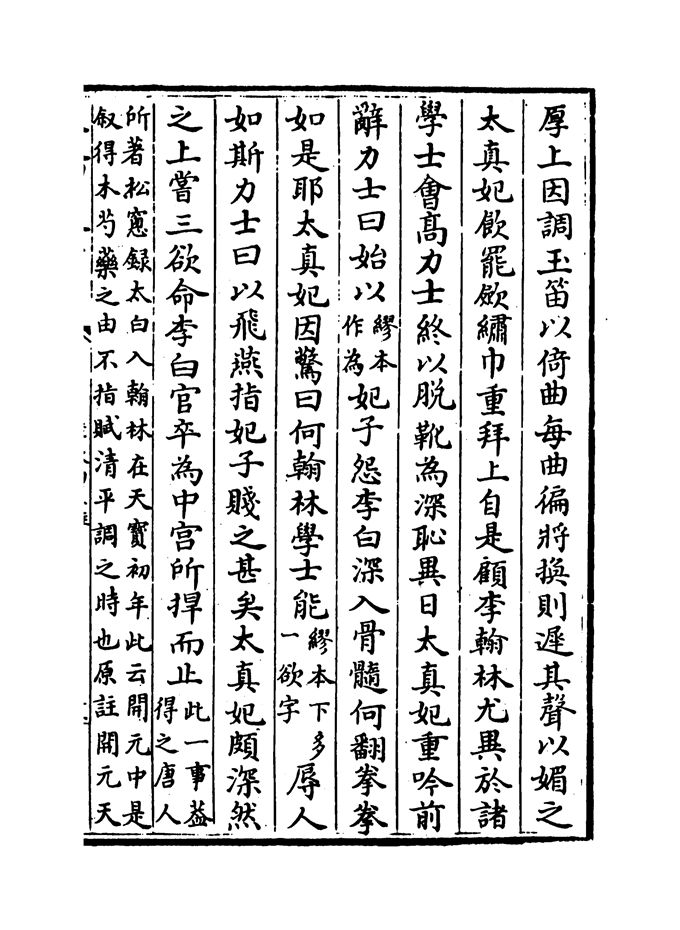 厚上因調玉笛以倚曲每曲徧將換則遲其聲以媚之
太真妃飲罷斂繡巾重拜上自是顧李翰林尤異於諸
學士會髙力士終以脱靴為深恥異日太真妃重吟前
辭力士曰始以繆本作為妃子怨李白深入骨髓何翻拳拳
如是耶太真妃因驚曰何翰林學士能繆本下多一欲字辱人
如斯力士曰以飛燕指妃子賤之甚矣太真妃頗深然
之上嘗三欲命李白官卒為中宫所捍而止此一事葢得之唐人
所著松窻録太白入翰林在天寳初年此云開元中是
叙得木芍藥之由不指賦清平調之時也原註開元天